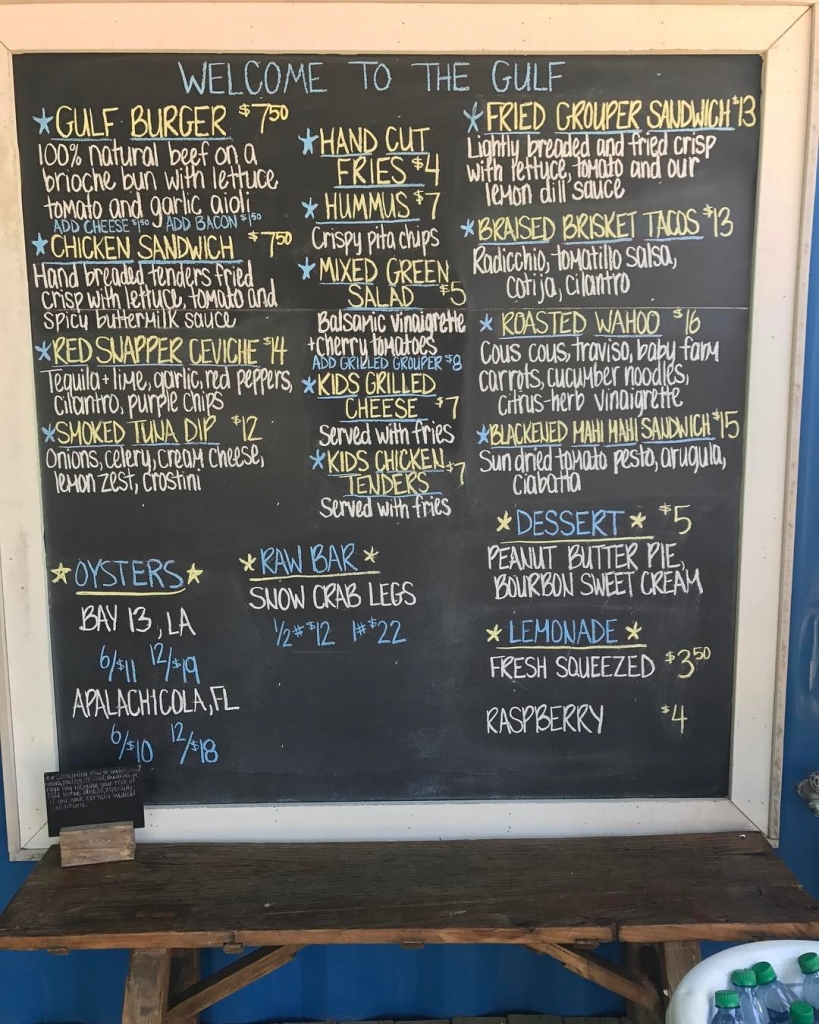 WELCOME TO THE GULF
GULF BURGER $7.50
100% natural beef on a
brioche bun with lettuce
tomato and garlic aioli
ADD CHEESE $1.50 ADD BACON $1.50
CHICKEN SANDWICH $7.50
Hand breaded tenders fried
crisp with lettuce, tomato and
spicy buttermilk sauce
RED SNAPPER CEVICHE $14
Tequila + lime, garlic, red peppers,
cilantro, purple chips
SMOKED TUNA DIP $12
Onions, celery, cream cheese,
lemon zest, crostini
HAND CUT
FRIES $4
HUMMUS $7
Crispy pita chips
MIXED GREEN
SALAD $5
Balsamic vinaigrette
+ cherry tomatoes
ADD GRILLED GROUPER $8
KIDS GRILLED
CHEESE $7
Served with fries
KIDS CHICKEN
TENDERS $7
Served with fries
FRIED GROUPER SANDWICH $13
Lightly breaded and fried crisp
with lettuce, tomato and our
lemon dill sauce
BRAISED BRISKET TACOS $13
Radicchio, tomatillo salsa,
cotija, cilantro
ROASTED WAHOO $16
Cous cous, traviso, baby farm
carrots, cucumber noodles,
citrus-herb vinaigrette
BLACKENED MAHI MAHI SANDWICH $15
Sun dried tomato pesto, arugula,
ciabatta
OYSTERS
BAY 13, LA
6/$11 12/$19
APALACHICOLA, FL
6/$10 12/$18
RAW BAR
SNOW CRAB LEGS
1/2# $12 1# $22
DESSERT $5
PEANUT BUTTER PIE,
BOURBON SWEET CREAM
LEMONADE
FRESH SQUEEZED $3.50
RASPBERRY $4
** Consuming raw or undercooked
meats, poultry,
eggs may increase your risk of
food borne illness, especially
if you have certain medical
conditions